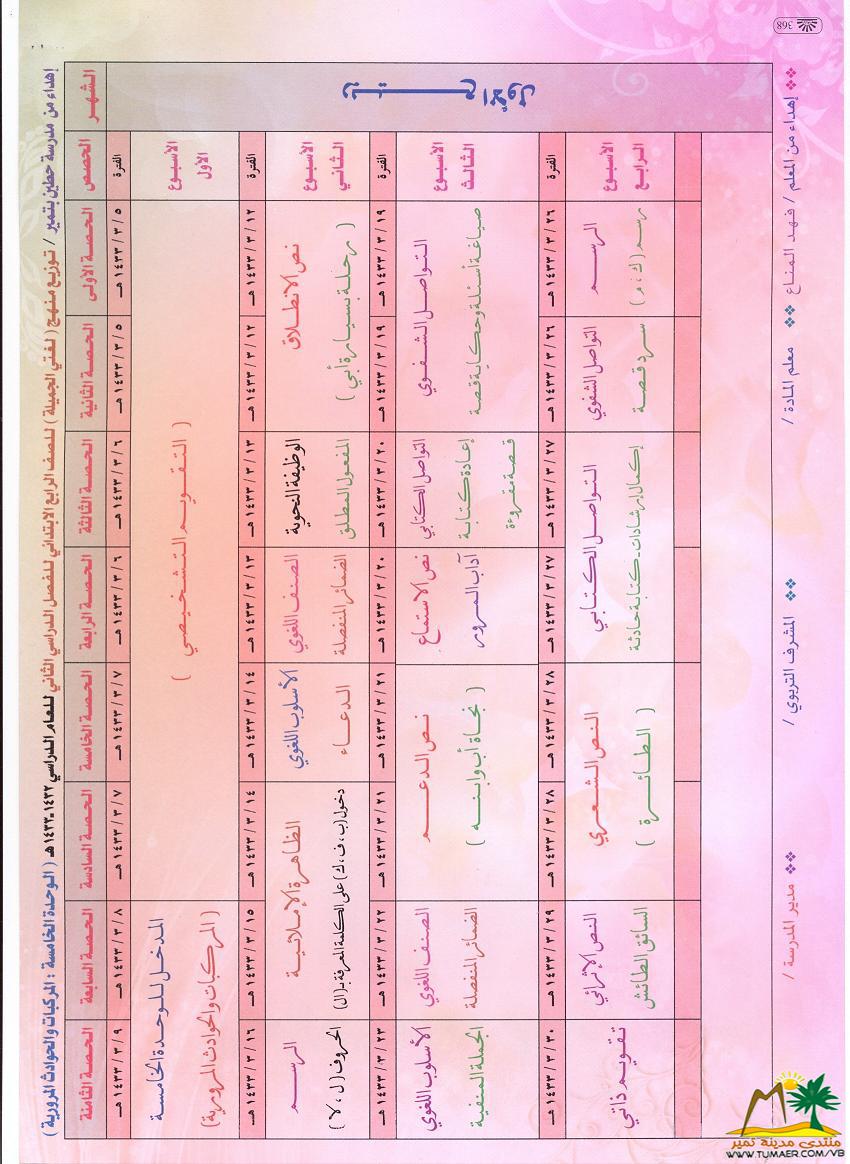 إهداء من مدرسة حطين بتمير / توزيع منهج ( لغتي الجميلة ) للصف الرابع الابتدائي للفصل الدراسي الثاني للعام الدراسي ١٤٣٢-١٤٣٣ هـ ( الوحدة الخامسة : المركبات والحوادث المرورية )
الشهر
الحصص
الحصة الأولى
الحصة الثانية
الحصة الثالثة
الحصة الرابعة
الحصة الخامسة
الحصة السادسة
الحصة السابعة
الحصة الثامنة
ربيع الأول
الفترة
٥ / ٣ / ١٤٣٣ هـ
٥ / ٣ / ١٤٣٣ هـ
٦ / ٣ / ١٤٣٣ هـ
٦ / ٣ / ١٤٣٣ هـ
٧ / ٣ / ١٤٣٣ هـ
٧ / ٣ / ١٤٣٣ هـ
٨ / ٣ / ١٤٣٣ هـ
٩ / ٣ / ١٤٣٣ هـ
الأسبوع
الأول
( التقويم التشخيصي )
المدخل للوحدة الخامسة
(المركبات والحوادث المرورية)
الفترة
١٢ / ٣ / ١٤٣٣ هـ
١٢ / ٣ / ١٤٣٣ هـ
١٣ / ٣ / ١٤٣٣ هـ
١٣ / ٣ / ١٤٣٣ هـ
١٤ / ٣ / ١٤٣٣ هـ
١٤ / ٣ / ١٤٣٣ هـ
١٥ / ٣ / ١٤٣٣ هـ
١٦ / ٣ / ١٤٣٣ هـ
الأسبوع
الثاني
نص الانطلاق
( رحلة بسيارة أبي )
الوظيفة النحوية
المفعول المطلق
الصنف اللغوي
الضمائر المنفصلة
الأسلوب اللغوي
الدعاء
الظاهرة الإملائية
دخول (ب ، ف ، ك) على الكلمة المعرفة بـ(ال)
الرسم
الحروف ( ل ، لا )
الفترة
١٩ / ٣ / ١٤٣٣ هـ
١٩ / ٣ / ١٤٣٣ هـ
٢٠ / ٣ / ١٤٣٣ هـ
٢٠ / ٣ / ١٤٣٣ هـ
٢١ / ٣ / ١٤٣٣ هـ
٢١ / ٣ / ١٤٣٣ هـ
٢٢ / ٣ / ١٤٣٣ هـ
٢٣ / ٣ / ١٤٣٣ هـ
الأسبوع
الثالث
التواصل الشفوي
صياغة أسئلة وحكاية قصة
التواصل الكتابي
إعادة كتابة
قصة مقروءة
نص الاستماع
آداب المرور
نص الدعم
( نجاة أب وابنه )
الصنف اللغوي
الضمائر المنفصلة
الأسلوب اللغوي
الجملة المنفية
الفترة
٢٦ / ٣ / ١٤٣٣ هـ
٢٦ / ٣ / ١٤٣٣ هـ
٢٧ / ٣ / ١٤٣٣ هـ
٢٧ / ٣ / ١٤٣٣ هـ
٢٨ / ٣ / ١٤٣٣ هـ
٢٨ / ٣ / ١٤٣٣ هـ
٢٩ / ٣ / ١٤٣٣ هـ
٣٠ / ٣ / ١٤٣٣ هـ
الأسبوع
الرابع
الرسم
رسم ( ك ، م )
التواصل الشفوي
سرد قصة
التواصل الكتابي
إكمال إرشادات - كتابة حادثة
النص الشعري
( الطائرة )
النص الإثرائي
السائق الطائش
تقويم ذاتي
إهداء من المعلم / فهد المناع
معلم المادة /
المشرف التربوي /
مدير المدرسة /
368
منتدى مدينة تمير
WWW.TUMAER.COM/VB